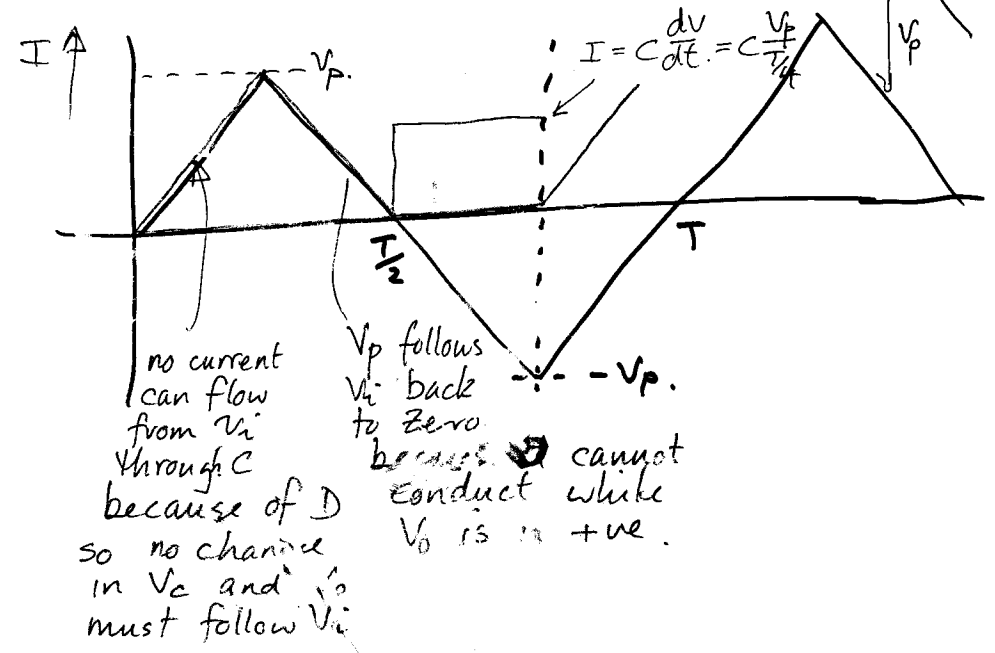 I
Vp.
I = C dv/dt. = C Vp/T/4
Vp
T/2
T
- Vp.
no current
can flow
from Vi
through C
because of D
so no change
in Vc and Vo
must follow Vi
Vp follows
Vi back
to zero
because cannot
conduct while
Vo is +ve.